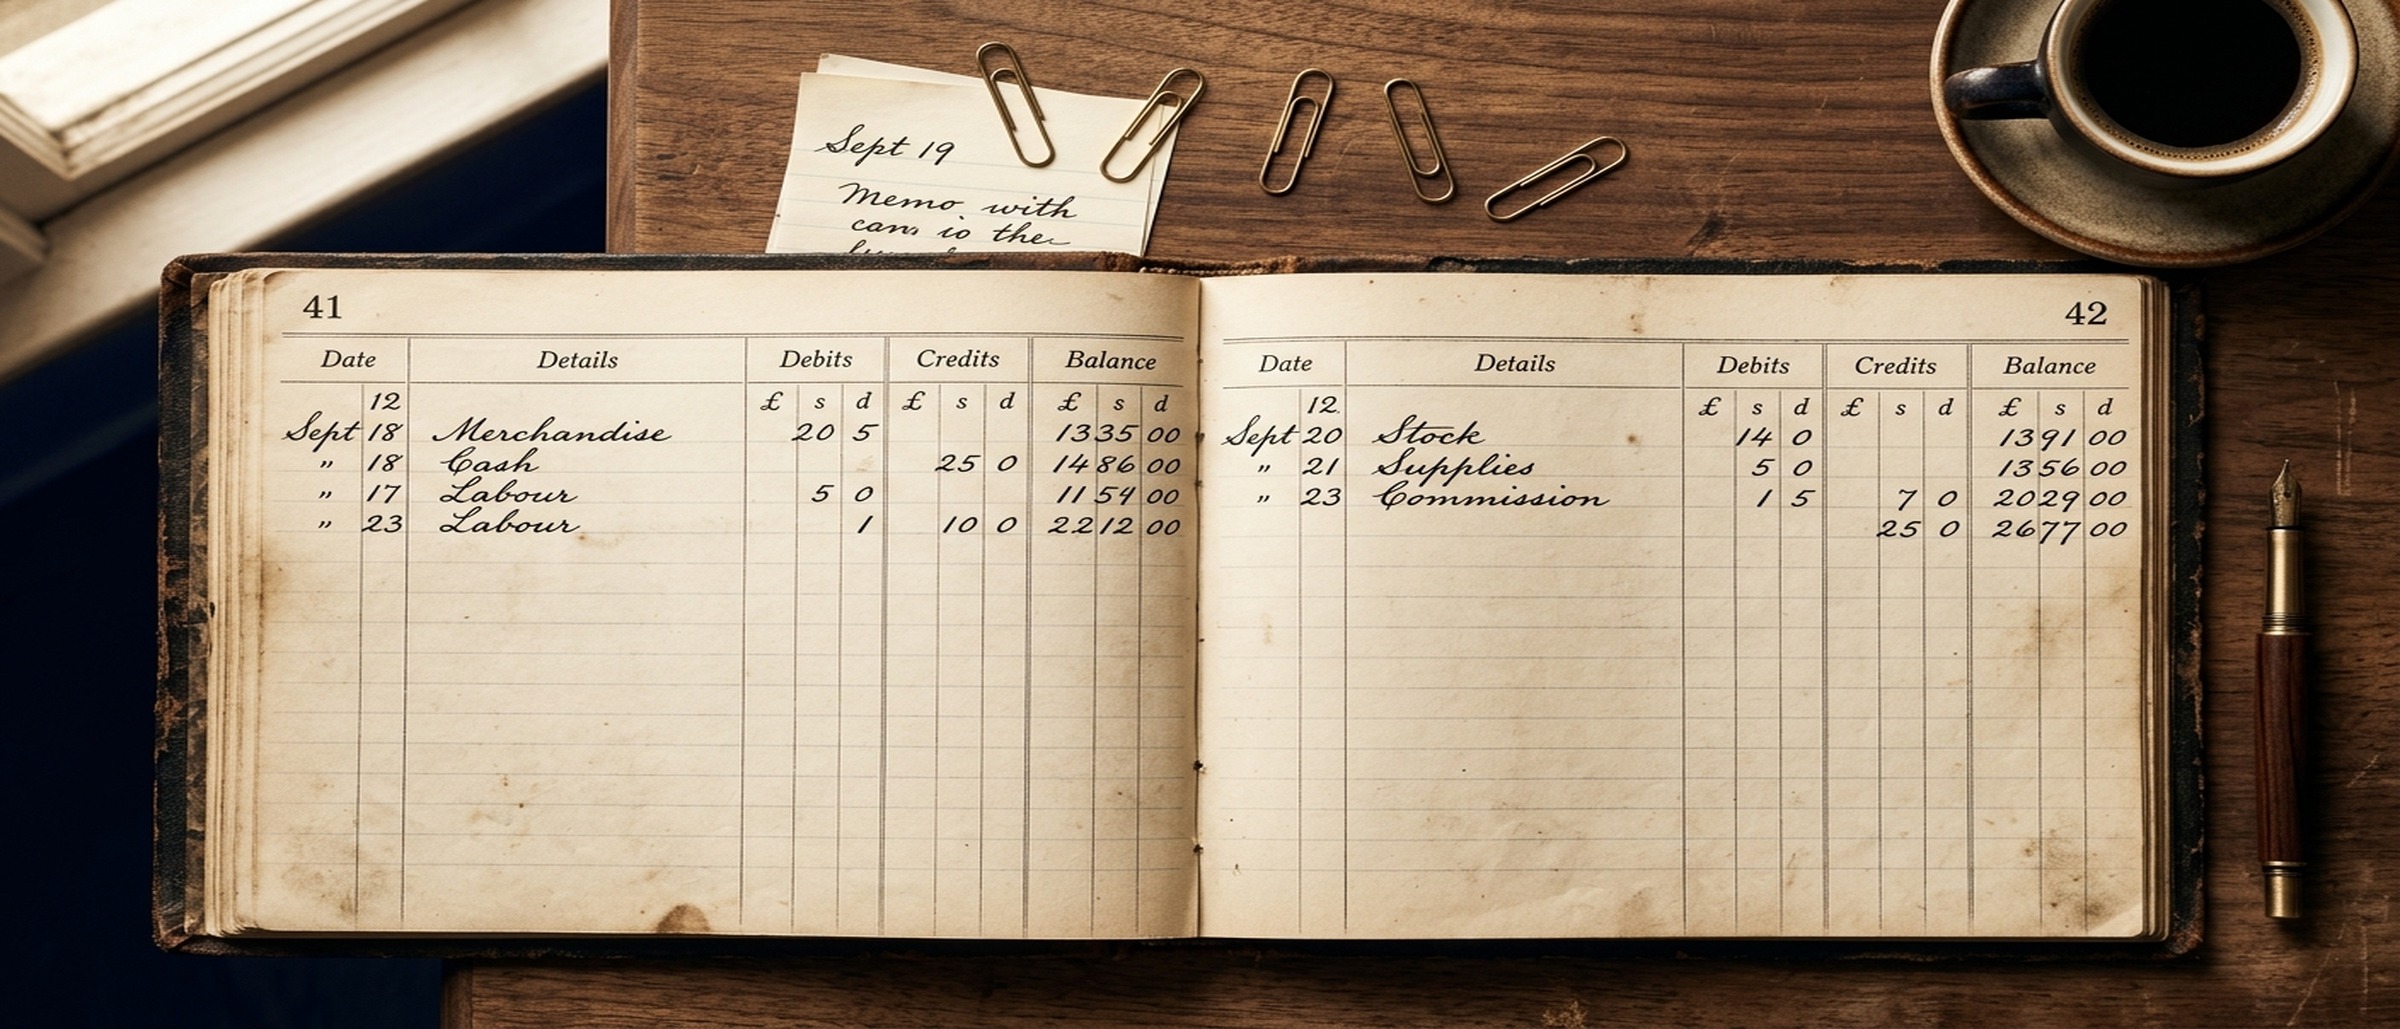 Sept 19
Memo with
the
41
Date Details Debits Credits Balance
12 £ s d £ s d £ s d
Sept 18 Merchandise 20 5 1335 00
" 18 Cash 25 0 1486 00
" 17 Labour 5 0 1154 00
" 23 Labour 1 10 0 2212 00
42
Date Details Debits Credits Balance
12. £ s d £ s d £ s d
Sept 20 Stock 14 0 1391 00
" 21 Supplies 5 0 1356 00
" 23 Commission 1 5 7 0 2029 00
25 0 2677 00